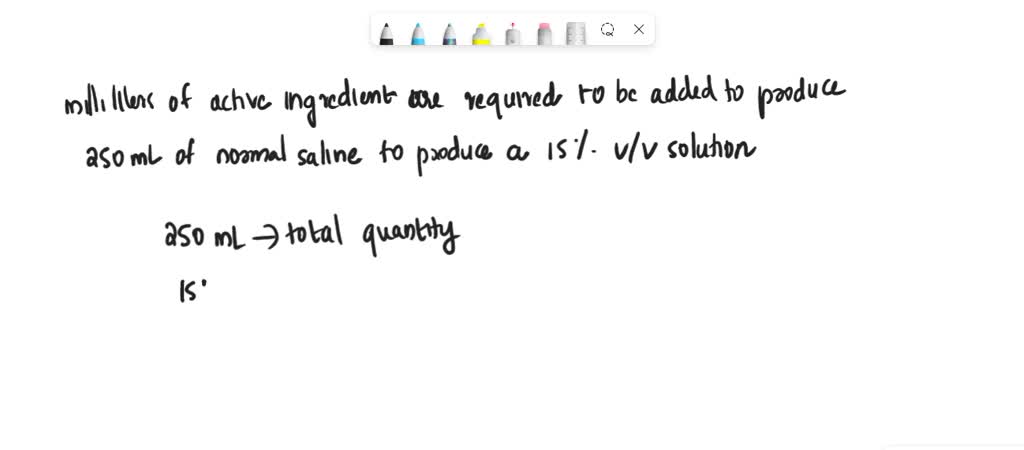 milliliters of active ingredient are required to be added to produce
250 mL of normal saline to produce a 15% v/v solution
250 mL → total quantity
15